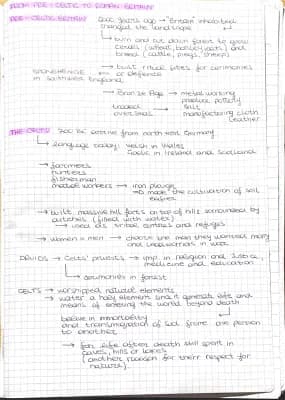 FROM PRE-CELTIC TO ROMAN BRITAIN
PRE-CELTIC BRITAIN
years ago → Britain inhabited
changed the landscape
→ burn and cut down forest to grow
cereals (wheat, barley, oats) and
breed (cattle, pigs, sheep)
→ built ritual sites for ceremonies
or defence
STONEHENGE
in southwest England
→ Bronze Age → metalworking
produce pottery
traded → salt
overseas manufacturing cloth
leather
THE CELTS: 500 BC arrive from north west Germany
→ language today: welsh in Wales
Gaelic in Ireland and Scotland
→ farmers
hunters
fisherman
metalworkers → iron plough
→ made the cultivation of soil
easier
→ built massive hill forts on top of hills surrounded by
ditches (filled with water)
→ used as tribal centres and refuges
→ women = men → choose the man they wanted marry
and leaders in war
DRUIDS → Celts' priests → imp. in religion and justice,
medicine and education
→ ceremonies in forest
CELTS → worshipped natural elements
→ water a holy element since it generates life and
means of entering the world beyond death
believe in immortality
and transmigration of soul from one person
to another
→ for life after death still spirit in
caves, hills or lakes
(another reason for their respect for
nature).